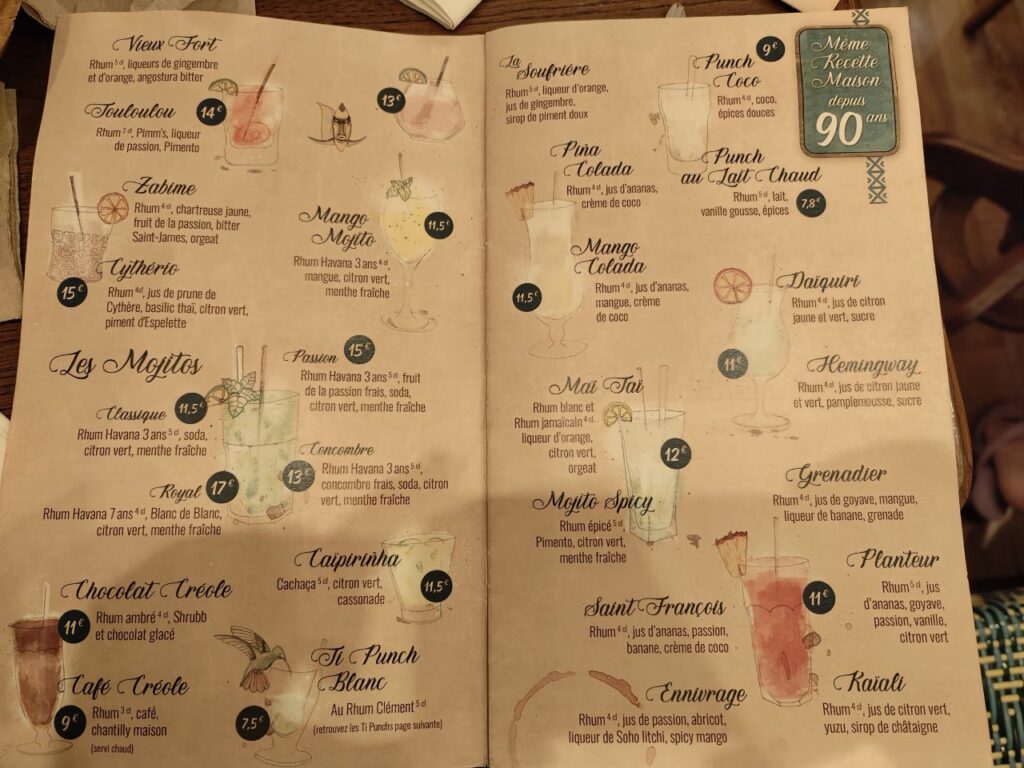 Vieux Fort
Rhum 5 cl, liqueurs de gingembre
et d'orange, angostura bitter
Touloulou
14 €
Rhum 2 cl, Pimm's, liqueur
de passion, Pimento
13 €
Zabime
Rhum 4 cl, chartreuse jaune,
fruit de la passion, bitter
Saint-James, orgeat
Mango
Mojito
11,5 €
Rhum Havana 3 ans 4 cl,
mangue, citron vert,
menthe fraîche
Cythério
15 €
Rhum 4 cl, jus de prune de
Cythère, basilic thaï, citron vert,
piment d'Espelette
Les Mojitos
Passion
15 €
Rhum Havana 3 ans 5 cl, fruit
de la passion frais, soda,
citron vert, menthe fraîche
Classique
11,5 €
Rhum Havana 3 ans 5 cl, soda,
citron vert, menthe fraîche
Concombre
13 €
Rhum Havana 3 ans 5 cl,
concombre frais, soda, citron
vert, menthe fraîche
Royal
17 €
Rhum Havana 7 ans 4 cl, Blanc de Blanc,
citron vert, menthe fraîche
Caïpirinha
Cachaça 5 cl, citron vert,
cassonade
11,5 €
Chocolat Créole
11 €
Rhum ambré 4 cl, Shrubb
et chocolat glacé
Café Créole
9 €
Rhum 3 cl, café,
chantilly maison
(servi chaud)
Ti Punch
Blanc
7,5 €
Au Rhum Clément 5 cl
(retrouvez les Ti Punchs page suivante)
La
Soufrière
Rhum 5 cl, liqueur d'orange,
jus de gingembre,
sirop de piment doux
Punch
Coco
9 €
Rhum 4 cl, coco,
épices douces
Même
Recette
Maison
depuis
90 ans
Piña
Colada
Rhum 4 cl, jus d'ananas,
crème de coco
Punch
au Lait Chaud
Rhum 5 cl, lait,
vanille gousse, épices
7,8 €
Mango
Colada
11,5 €
Rhum 4 cl, jus d'ananas,
mangue, crème
de coco
Daïquiri
Rhum 4 cl, jus de citron
jaune et vert, sucre
11 €
Hemingway
Rhum 4 cl, jus de citron jaune
et vert, pamplemousse, sucre
Maï Taï
Rhum blanc et
Rhum jamaïcain 4 cl,
liqueur d'orange,
citron vert,
orgeat
12 €
Mojito Spicy
Rhum épicé 5 cl,
Pimento, citron vert,
menthe fraîche
Grenadier
Rhum 4 cl, jus de goyave, mangue,
liqueur de banane, grenade
Planteur
11 €
Rhum 5 cl, jus
d'ananas, goyave,
passion, vanille,
citron vert
Saint François
Rhum 4 cl, jus d'ananas, passion,
banane, crème de coco
Ennivrage
Rhum 4 cl, jus de passion, abricot,
liqueur de Soho litchi, spicy mango
Kaïali
Rhum 4 cl, jus de citron vert,
yuzu, sirop de châtaigne